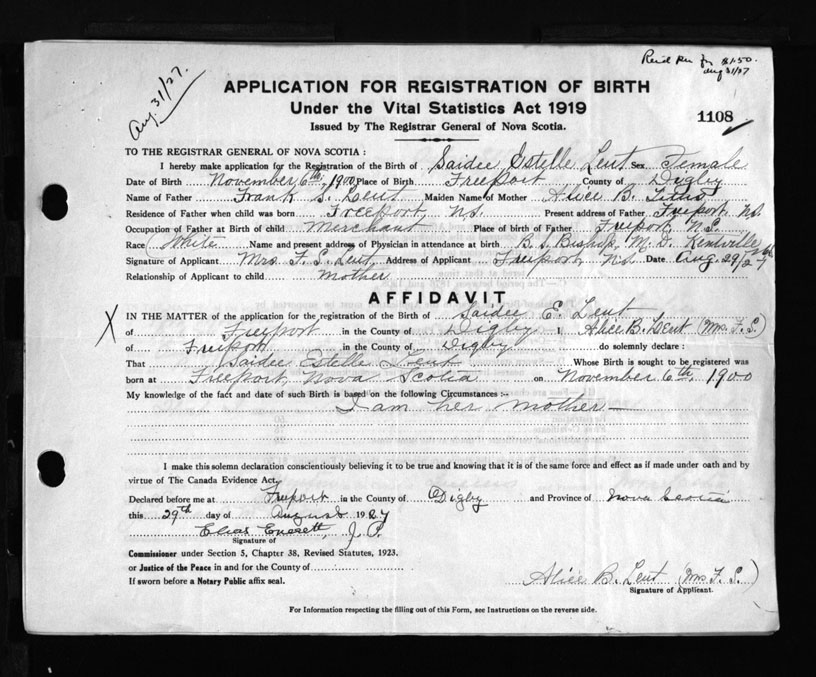 Aug 31/27.
Recd for $1.50.
Aug 31/27
APPLICATION FOR REGISTRATION OF BIRTH
Under the Vital Statistics Act 1919
Issued by The Registrar General of Nova Scotia.
1108
TO THE REGISTRAR GENERAL OF NOVA SCOTIA :
I hereby make application for the Registration of the Birth of Saidee Estelle Lent Sex Female
Date of Birth November 6th, 1900 Place of Birth Freeport County of Digby
Name of Father Frank S. Lent Maiden Name of Mother Alice B. Titus
Residence of Father when child was born Freeport, N.S. Present address of Father Freeport, N.S.
Occupation of Father at Birth of child Merchant Place of birth of Father Freeport, N.S.
Race White Name and present address of Physician in attendance at birth B. S. Bishop, M. D. Kentville
Signature of Applicant Mrs F. S. Lent, Address of Applicant Freeport, N.S. Date Aug. 29/27
Relationship of Applicant to child Mother
AFFIDAVIT
X IN THE MATTER of the application for the registration of the Birth of Saidee E. Lent
of Freeport in the County of Digby I, Alice B. Lent (Mrs F. S.)
of Freeport in the County of Digby do solemnly declare :
That Saidee Estelle Lent Whose Birth is sought to be registered was
born at Freeport, Nova Scotia on November 6th, 1900
My knowledge of the fact and date of such Birth is based on the following Circumstances :-
I am her mother
I make this solemn declaration conscientiously believing it to be true and knowing that it is of the same force and effect as if made under oath and by
virtue of The Canada Evidence Act.
Declared before me at Freeport in the County of Digby and Province of Nova Scotia
this 29th day of August 1927
Elias Everett, J. P.
Signature of
Commissioner under Section 5, Chapter 38, Revised Statutes, 1923.
or Justice of the Peace in and for the County of
If sworn before a Notary Public affix seal.
Alice B. Lent (Mrs F. S.)
Signature of Applicant.
For Information respecting the filling out of this Form, see Instructions on the reverse side.